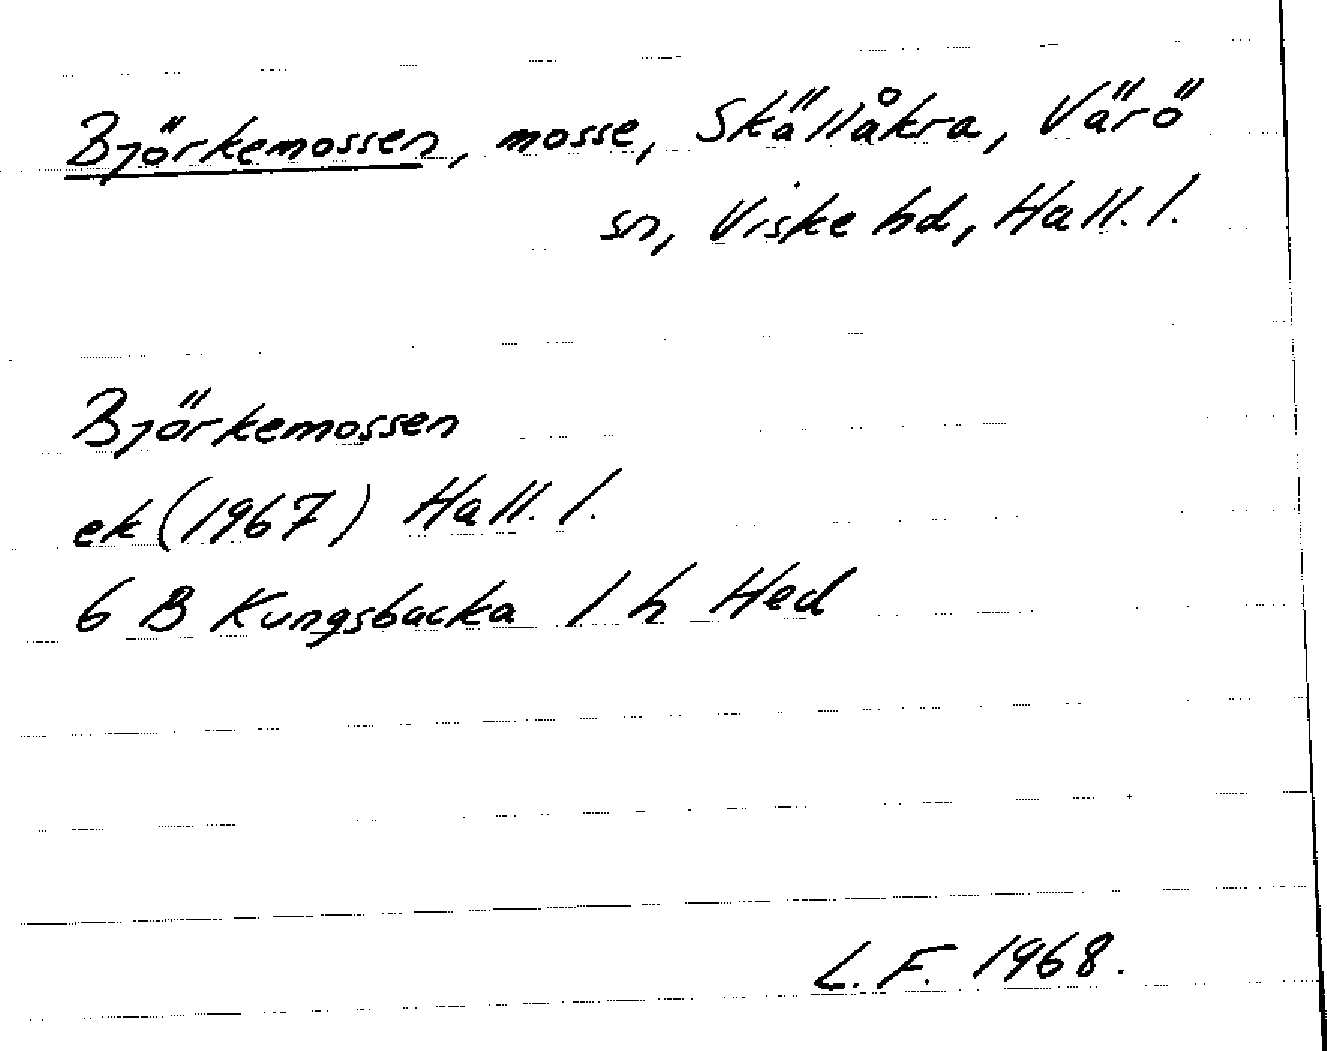 Björkemossen, mosse, Skällåkra, Värö
sn, Viske hd, Hall. l.
Björkemossen
ek (1967) Hall. l.
6 B Kungsbacka 1 h Hed
L. F. 1968.